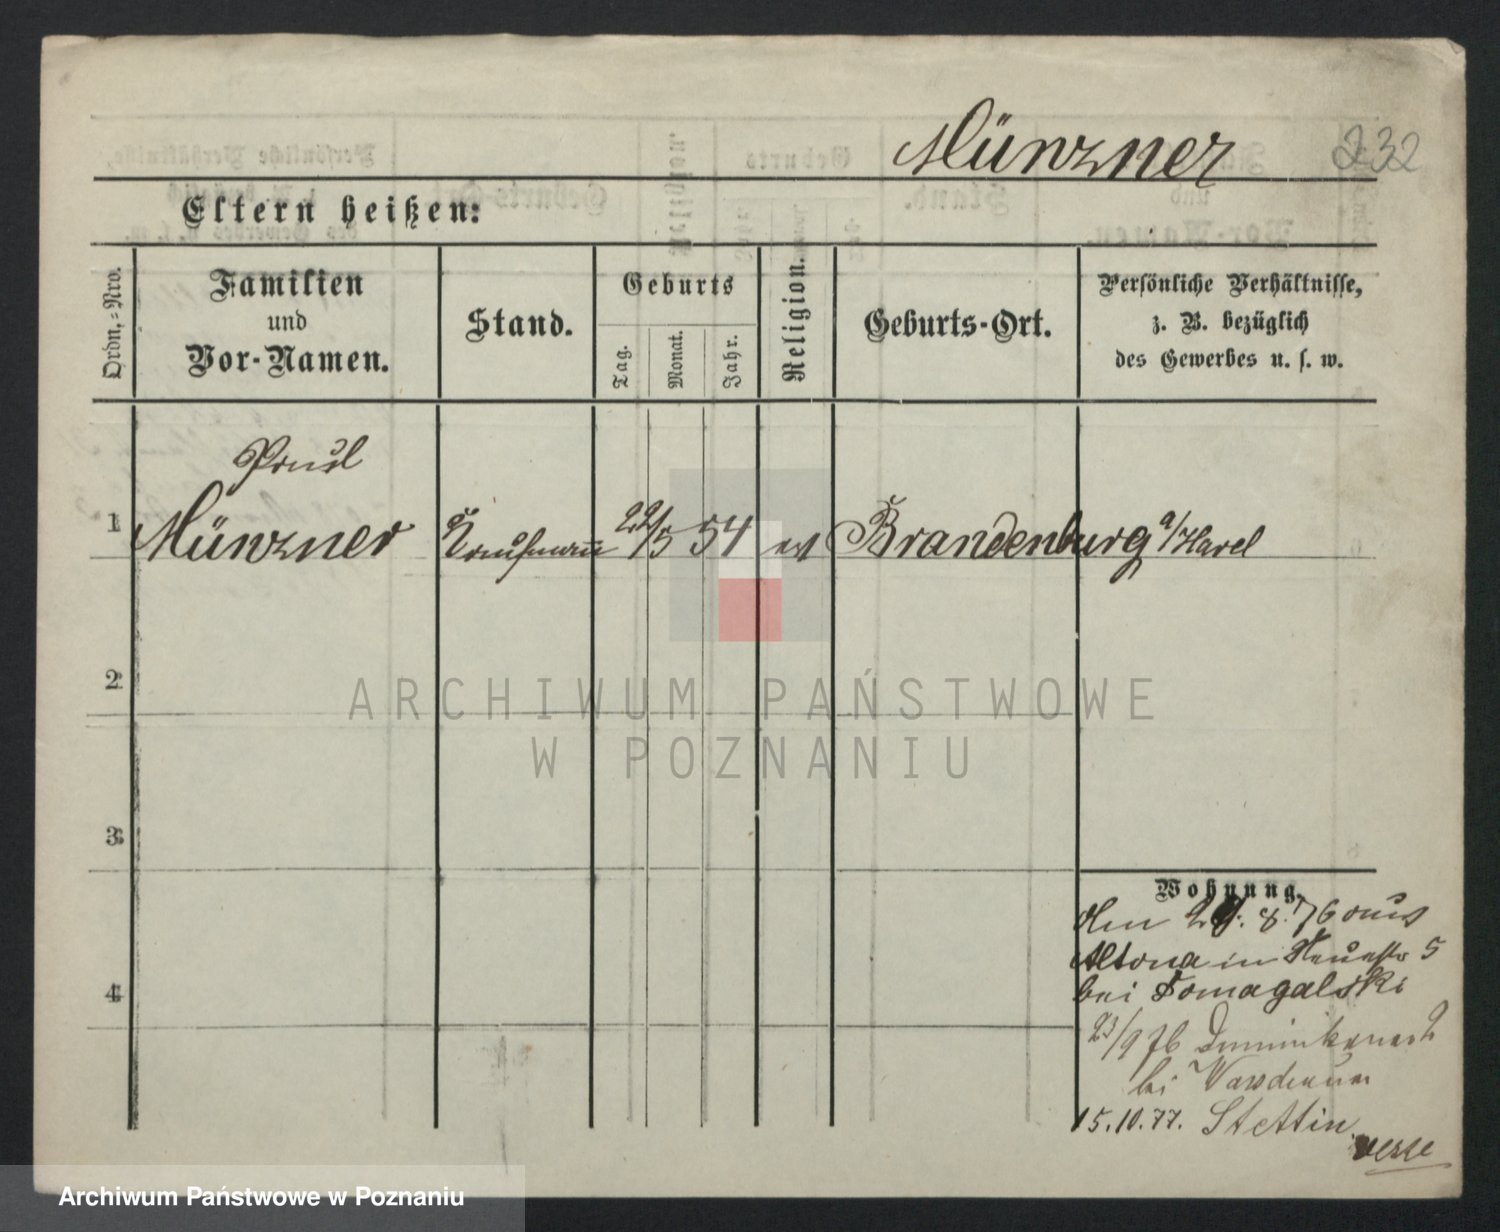 Münzner 232
Eltern heißen:
Ordn.=Nro.
Familien
und
Vor-Namen.
Stand.
Geburts
Tag.
Monat.
Jahr.
Religion.
Geburts-Ort.
Persönliche Verhältnisse,
z. B. bezüglich
des Gewerbes u. s. w.
Paul
1 Münzner Kaufmann 22/5 54 ev Brandenburg a/Havel
2
3
4
Wohnung.
den 29. 8. 76 aus
Altona in Neuestr 5
bei Tomagalski
23/9 76 Dominikanerst 2
bei
15.10.77. Stettin
verze
ARCHIWUM PAŃSTWOWE
W POZNANIU
Archiwum Państwowe w Poznaniu